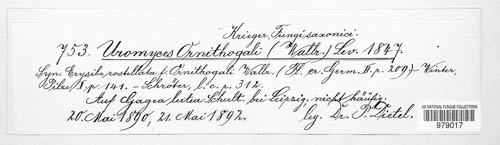 Krieger, Fungi saxonici.
753. Uromyces Ornithogali (Wallr.) Lev. 1847.
Syn. Erysibe rostellata f. Ornithogali Wallr. (Fl. cr. Germ. II. p. 209) – Winter,
Pilze I. p. 141. – Schröter, l. c. p. 312.
Auf Gagea lutea Schult. bei Leipzig, nicht häufig.
20. Mai 1890, 21. Mai 1892. leg. Dr. P. Dietel.
US NATIONAL FUNGUS COLLECTIONS
979017